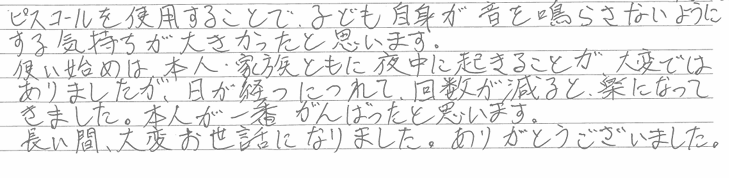 ピスコールを使用することで、子ども自身が音を鳴らさないように
する気持ちが大きかったと思います。
使い始めは、本人・家族ともに夜中に起きることが大変では
ありましたが、日が経つにつれて、回数が減ると、楽になって
きました。本人が一番がんばったと思います。
長い間、大変お世話になりました。ありがとうございました。